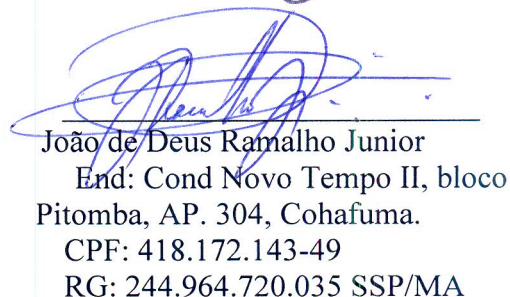 João de Deus Ramalho Junior
End: Cond Novo Tempo II, bloco
Pitomba, AP. 304, Cohafuma.
CPF: 418.172.143-49
RG: 244.964.720.035 SSP/MA